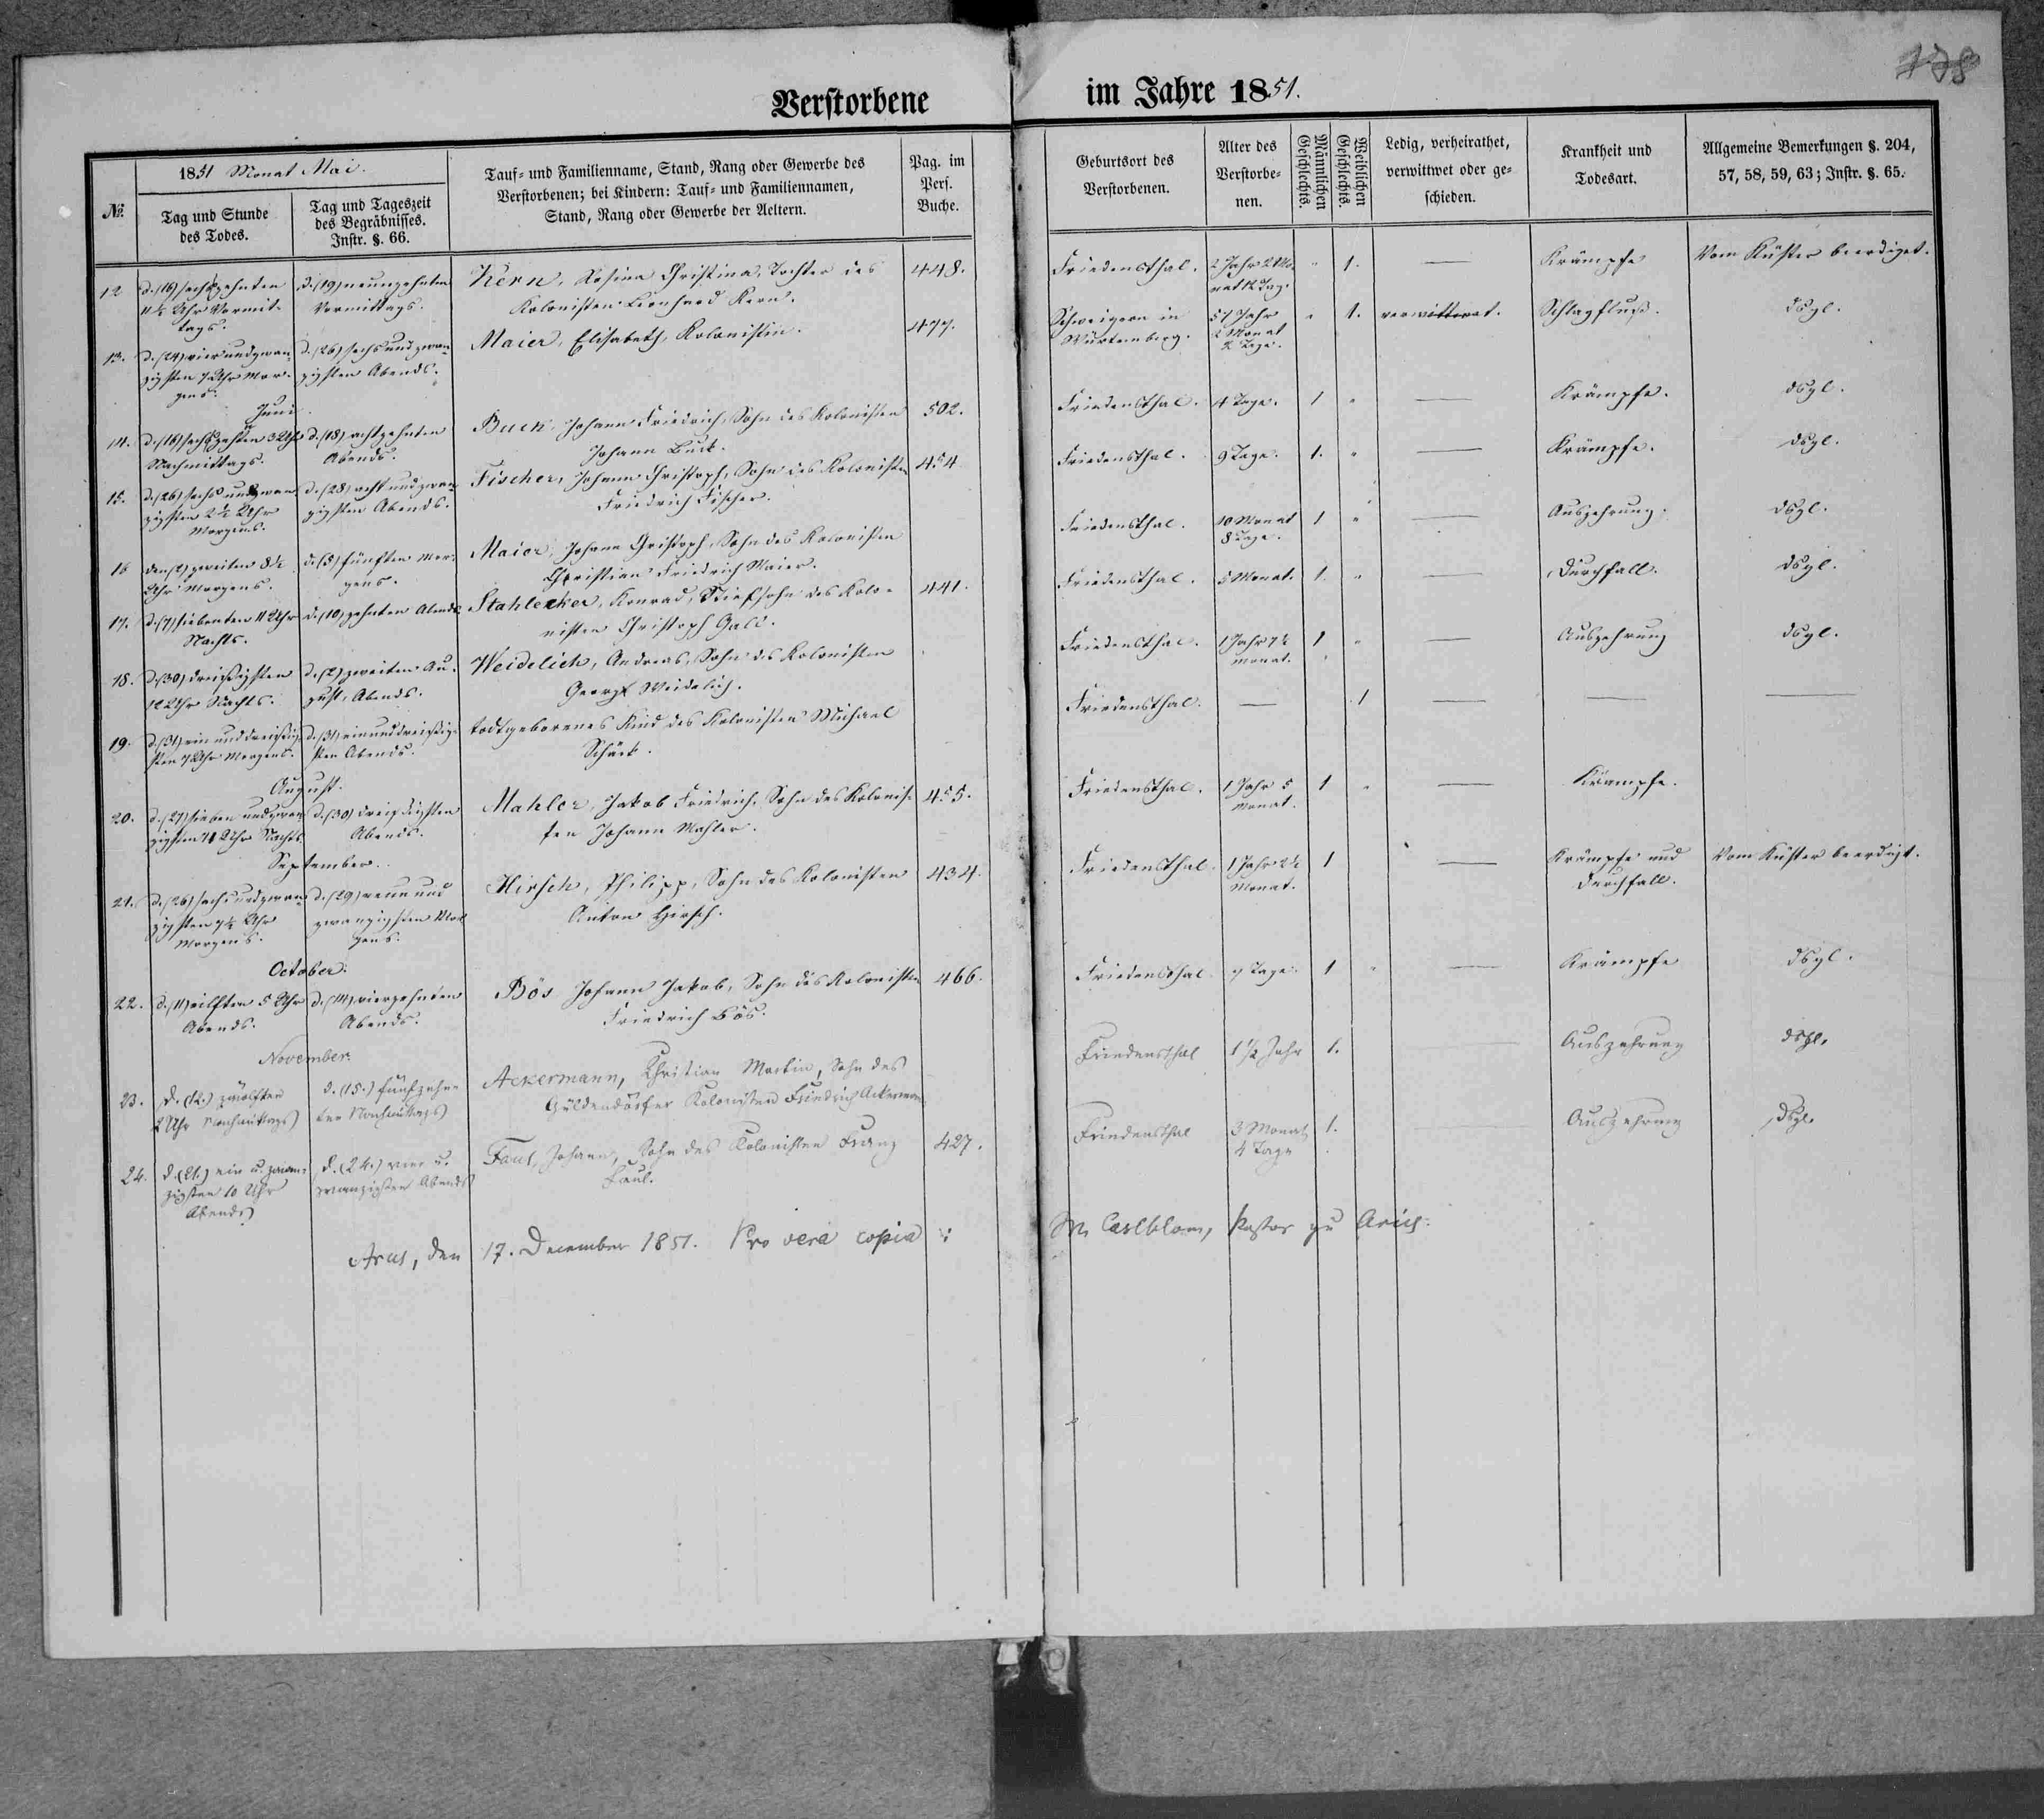 178
Verstorbene im Jahre 1851.
№.
1851 Monat Mai.
Tag und Stunde
des Todes.
Tag und Tageszeit
des Begräbnisses.
Instr. §. 66.
Tauf- und Familienname, Stand, Rang oder Gewerbe des
Verstorbenen; bei Kindern: Tauf- und Familiennamen,
Stand, Rang oder Gewerbe der Aeltern.
Pag. im
Pers.
Buche.
Geburtsort des
Verstorbenen.
Alter des
Verstorbe-
nen.
Männlichen
Geschlechts.
Weiblichen
Geschlechts.
Ledig, verheirathet,
verwittwet oder ge-
schieden.
Krankheit und
Todesart.
Allgemeine Bemerkungen §. 204,
57, 58, 59, 63; Instr. §. 65.
12
d. (16) sechszehnten
11½ Uhr Vormit-
tags.
d. (19) neunzehnten
Vormittags.
Kern, Rosina Christina, Tochter des
Kolonisten Leonhard Kern.
448.
Friedensthal.
2 Jahr 2 Mo-
nat 12 Tag.
" 1. —
Krämpfe
Vom Küster beerdiget.
13.
d. (24) vierundzwan-
zigsten 7 Uhr Mor-
gens.
d. (26) sechsundzwan-
zigsten Abends.
Maier, Elisabeth, Kolonistin.
477.
Schweigern in
Würtemberg.
57 Jahr
2 Monat
2 Tage.
" 1. verwittwet.
Schlagfluß.
dsgl.
Juni.
14.
d. (16) sechszehnten 3 Uhr
Nachmittags.
d. (18) achtzehnten
Abends.
Buck, Johann Friedrich, Sohn des Kolonisten
Johann Buck.
502.
Friedensthal. 4 Tage. 1 " —
Krämpfe.
dsgl.
15.
d. (26) sechsundzwan-
zigsten 2½ Uhr
Morgens.
d. (28) achtundzwan-
zigsten Abends.
Fischer, Johann Christoph, Sohn des Kolonisten
Friedrich Fischer.
454
Friedensthal. 9 Tage. 1. " —
Krämpfe.
dsgl.
16
den (2) zweiten 8½
Uhr Morgens.
d. (5) fünften Mor-
gens.
Maier, Johann Christoph, Sohn des Kolonisten
Christian Friedrich Maier.
Friedensthal.
10 Monat
8 Tage.
1 " —
Auszehrung.
dsgl.
17.
d. (7) siebenten 11 Uhr
Nachts.
d. (10) zehnten Abends
Stahlecker, Konrad, Stiefsohn des Kolo-
nisten Christoph Gald.
441.
Friedensthal. 5 Monat. 1. " —
Durchfall.
dsgl.
18.
d. (30) dreißigsten
12 Uhr Nachts.
d. (2) zweiten Au-
gust, Abends.
Weidelich, Andreas, Sohn des Kolonisten
Georg Weidelich.
Friedensthal.
1 Jahr 7½
Monat.
1 " —
Auszehrung
dsgl.
19.
d. (31) einunddreißig-
sten 7 Uhr Morgens.
d. (31) einunddreißig-
sten Abends.
todtgeborenes Kind des Kolonisten Michael
Schärk.
Friedensthal. — 1 — — —
August.
20.
d. (27) siebenundzwan-
zigsten 11 Uhr Nachts.
d. (30) dreißigsten
Abends.
Mahler, Jakob Friedrich, Sohn des Kolonis-
ten Johann Mahler.
455.
Friedensthal.
1 Jahr 5
Monat.
1 " —
Krämpfe.
September.
21.
d. (26) sechsundzwan-
zigsten 7½ Uhr
Morgens.
d. (29) neunund
zwanzigsten Mor
gens.
Hirsch, Philipp, Sohn des Kolonisten
Anton Hirsch.
434.
Friedensthal.
1 Jahr 2½
Monat.
1 —
Krämpfe und
Durchfall.
Vom Küster beerdigt.
October.
22.
d. (11) eilften 5 Uhr
Abends.
d. (14) vierzehnten
Abends.
Bös Johann Jakob, Sohn des Kolonisten
Friedrich Bös.
466.
Friedensthal. 7 Tage. 1 " —
Krämpfe
dsgl.
November.
23.
d. (12.) zwölften
2 Uhr Nachmittags
d. (15.) fünfzehn-
ten Nachmittags
Ackermann, Christian Martin, Sohn des
Güldendorfer Kolonisten Friedrich Ackermann
Friedensthal 1½ Jahr 1. —
Auszehrung
dsgl.
24.
d. (21.) ein u. zwan-
zigsten 10 Uhr
Abends
d. (24.) vier u.
zwanzigsten Abends
Faul, Johann, Sohn des Kolonisten Franz
Faul.
427.
Friedensthal
3 Monat
4 Tage
1. —
Auszehrung
dsgl.
Arcis, den 17. December 1851. Pro vera copia: W. Carlblom, Pastor zu Arcis.